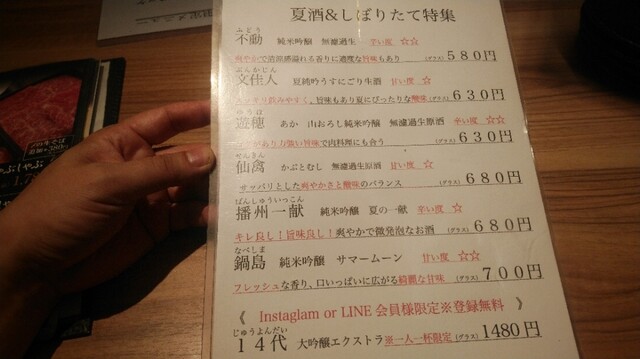 夏酒&しぼりたて特集
ふどう
不動 純米吟醸 無濾過生 辛い度 ☆☆
爽やかで清涼感溢れる香りに適度な旨味もあり (グラス) 580円
ぶんかじん
文佳人 夏純吟うすにごり生酒 甘い度 ☆
スッキリ飲みやすく、旨味もあり夏にぴったりな酸度 (グラス) 630円
ゆうほ
遊穂 あか 山おろし純米吟醸 無濾過生原酒 辛い度 ☆☆
コクがあり力強い旨味で肉料理にも合う (グラス) 630円
せんきん
仙禽 かぶとむし 無濾過生原酒 甘い度 ☆
サッパリとした爽やかさと酸味のバランス (グラス) 680円
ばんしゅういっこん
播州一献 純米吟醸 夏の一献 辛い度 ☆
キレ良し!旨味良し!爽やかで微発泡なお酒 (グラス) 680円
なべしま
鍋島 純米吟醸 サマームーン 甘い度 ☆☆
フレッシュな香り、口いっぱいに広がる綺麗な甘味 (グラス) 700円
《 Instaglam or LINE 会員様限定※登録無料 》
じゅうよんだい
14代 大吟醸エクストラ ※一人一杯限定 (グラス) 1480円